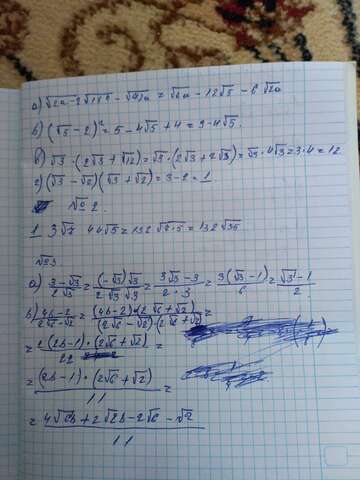 а) √2a - 2√18 0 - √72a = √2a - 12√5 - 6√2a
б) (√5 - 2)² = 5 - 4√5 + 4 = 9 - 4√5.
в) √3 · (2√3 + √12) = √3 · (2√3 + 2√3) = √3 · 4√3 = 3·4 = 12
г) (√3 - √2)(√3 + √2) = 3 - 2 = 1
№2.
1 3√7 44√5 = 132√7·5 = 132√35
№3
а) 3-√3/2√3 = (-√3)√3/2√3√3 = 3√3-3/2·3 = 3(√3-1)/6 = √3-1/2
б) 4b-2/2√6-√2 = (4b-2)·(2√6+√2)/(2√6-√2)·(2√6+√2) =
= 2(2b-1)·(2√6+√2)/22 =
= (2b-1)·(2√6+√2)/11 =
= 4√6b+2√2b-2√6-√2/11